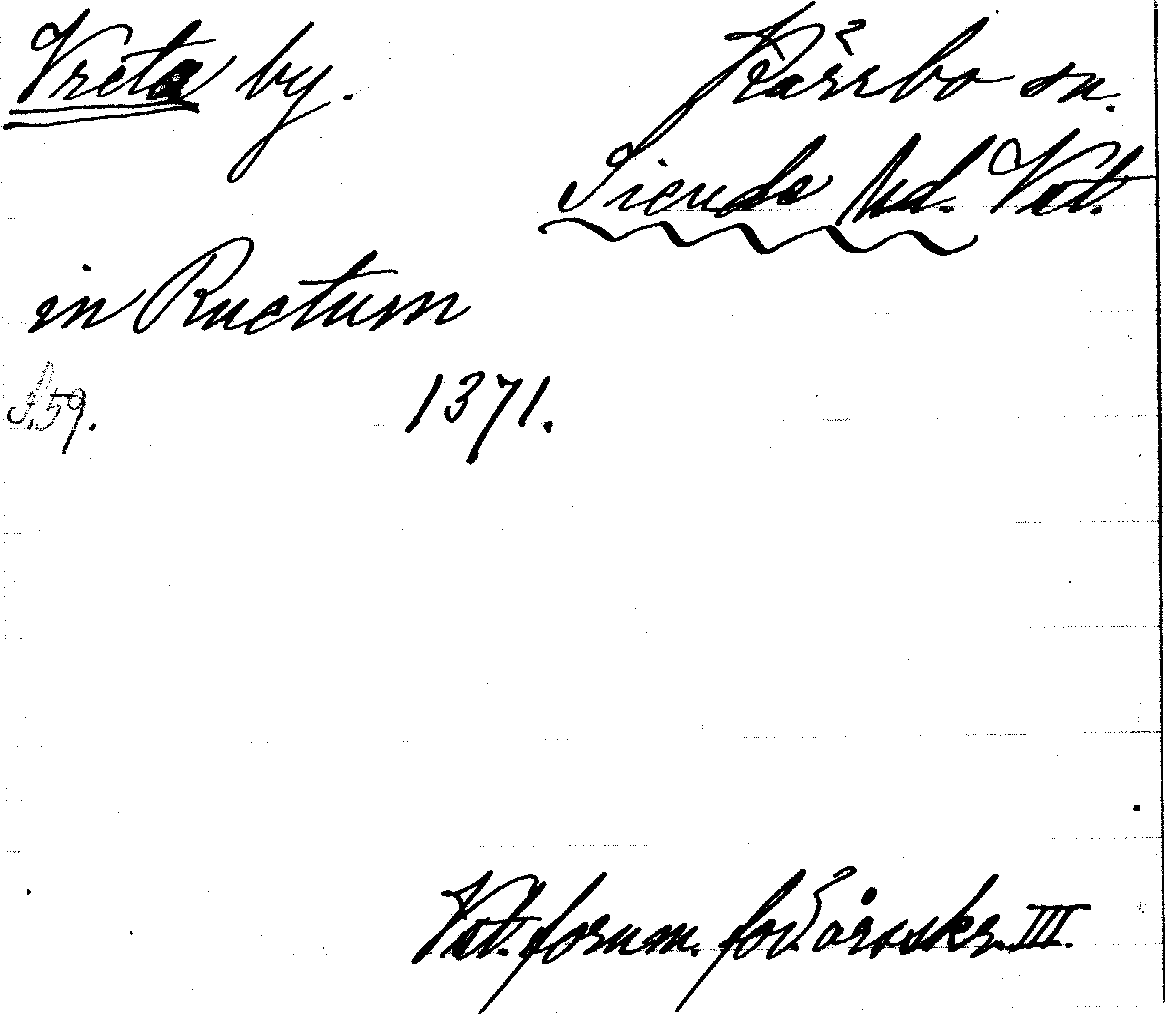 Vreta by.
Kärrbo sn.
Siende hd. Vstl.
in Ructum
S. 59.
1371.
Vstl. fornm. för. årsskr. III.